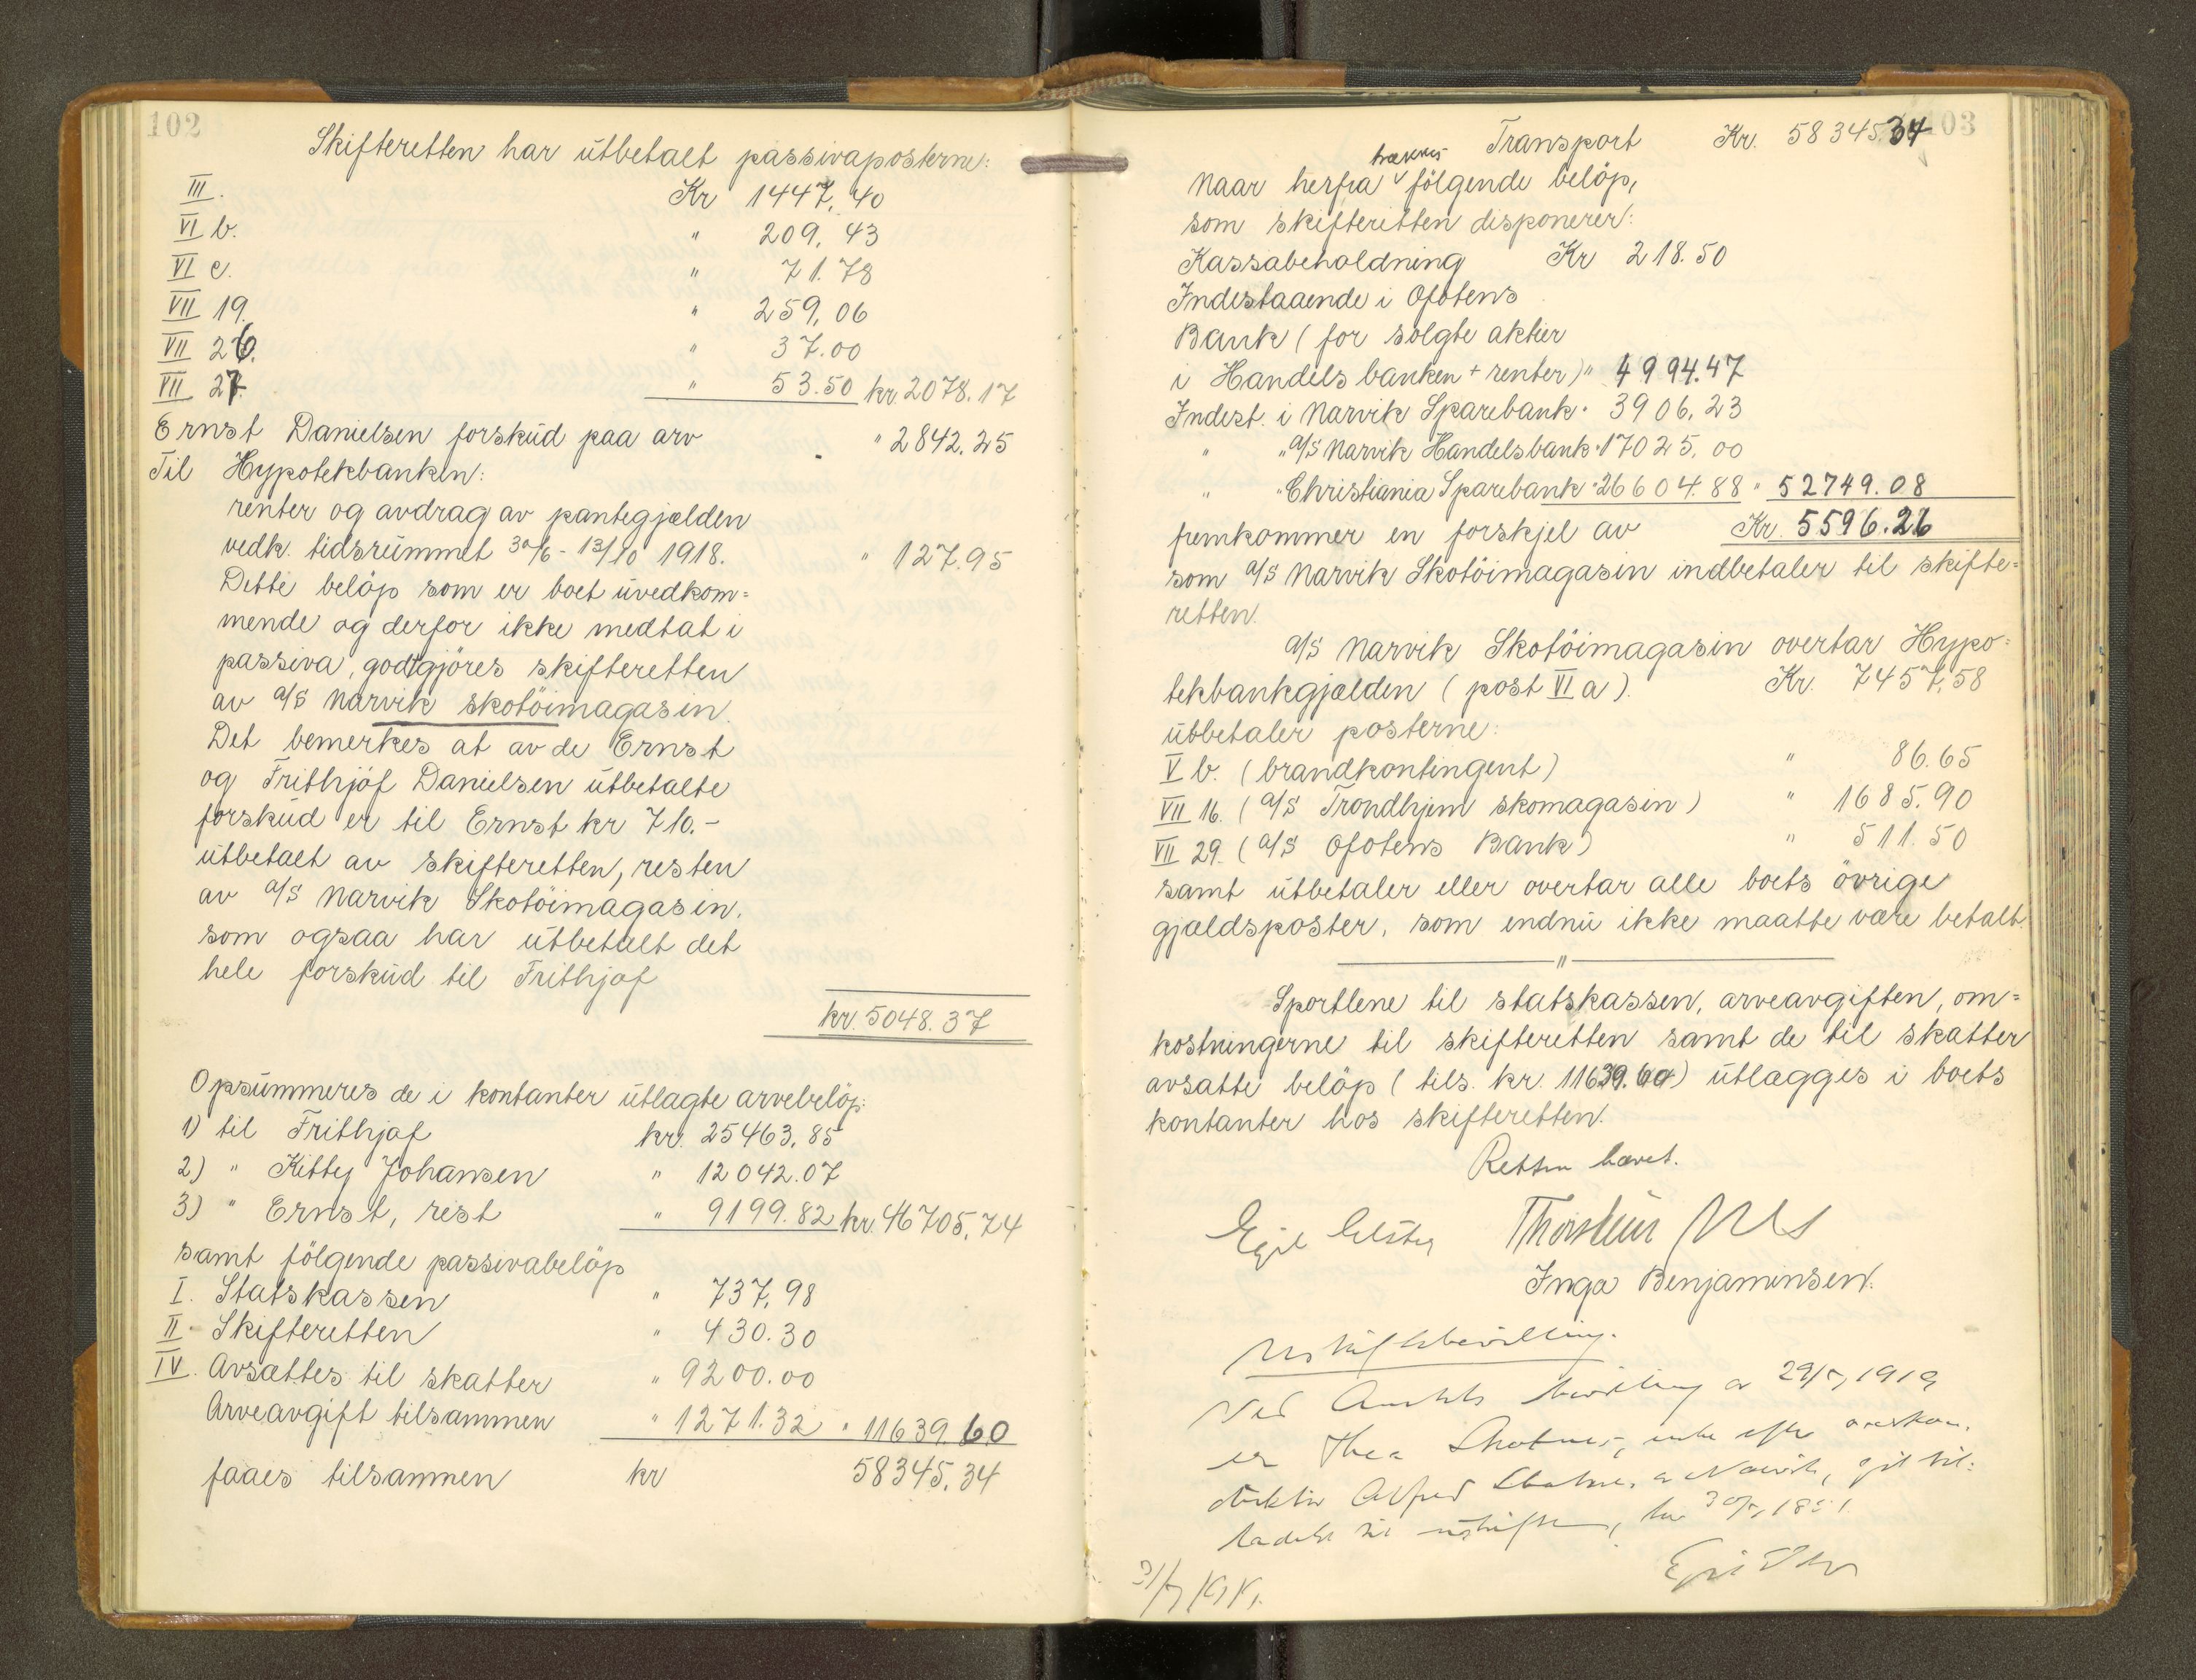 102
Skifteretten har utbetalt passivaposterne:
III. Kr 1447,40
VI b. " 209,43
VI c. " 71.78
VII 19. " 259,06
VII 26. " 37.00
VII 27. " 53.50 kr. 2078.17
Ernst Danielsen forskud paa arv " 2842.25
Til Hypotekbanken:
renter og avdrag av pantegjælden
vedk. tidsrummet 30/6 - 13/10 1918. " 127.95
Dette beløp som er boet uvedkom=
mende og derfor ikke medtat i
passiva, godtgjöres skifteretten
av a/s Narvik skotöimagasin.
Det bemerkes at av de Ernst
og Frithjof Danielsen utbetalte
forskud er til Ernst kr 710.-
utbetalt av skifteretten, resten
av a/s Narvik Skotöimagasin,
som ogsaa har utbetalt det
hele forskud til Frithjof
kr. 5048.37
Opsummeres de i kontanter utlagte arvebelöp:
1) til Frithjof kr. 25463,85
2) " Kitty Johansen " 12042.07
3) " Ernst, rest " 9199.82 kr. 46705,74
samt fölgende passivabelöp
I. Statskassen " 737,98
II. Skifteretten " 430.30
IV. Avsættes til skatter " 9200.00
Arveavgift tilsammen " 1271.32 " 11639.60
faaes tilsammen kr 58345.34
103
Transport Kr. 58345.34
trækkes
Naar herfra fölgende belöp,
som skifteretten disponerer:
Kassabeholdning Kr 218.50
Indestaaende i Ofotens
Bank (for solgte aktier
i Handelsbanken + renter) " 4994.47
Indest. i Narvik Sparebank " 3906,23
" " a/s Narvik Handelsbank " 17025,00
" " Christiania Sparebank " 26604.88 " 52749.08
fremkommer en forskjel av Kr. 5596.26
som a/s Narvik Skotöimagasin indbetaler til skifte=
retten.
a/s Narvik Skotöimagasin overtar Hypo=
tekbankgjælden (post VI a). Kr. 7457,58
utbetaler posterne:
V b. (brandkontingent) " 86.65
VII 16. (a/s Trondhjem skomagasin) " 1685.90
VII 29. (a/s Ofotens Bank) " 511.50
samt utbetaler eller overtar alle boets övrige
gjældsposter, som endnu ikke maatte være betalt.
"
Sportlene til statskassen, arveavgiften, om=
kostningerne til skifteretten samt de til skatter
avsatte belöp (tils. kr. 11639.60) utlægges i boets
kontanter hos skifteretten.
Retten hævet.
Thorstein
Inga Benjaminsen.
Uskiftebevilling.
Ved Amtets bevilling av 29/7 1919
er Thea enke efter
Alfred Narvik, git til=
ladelse til